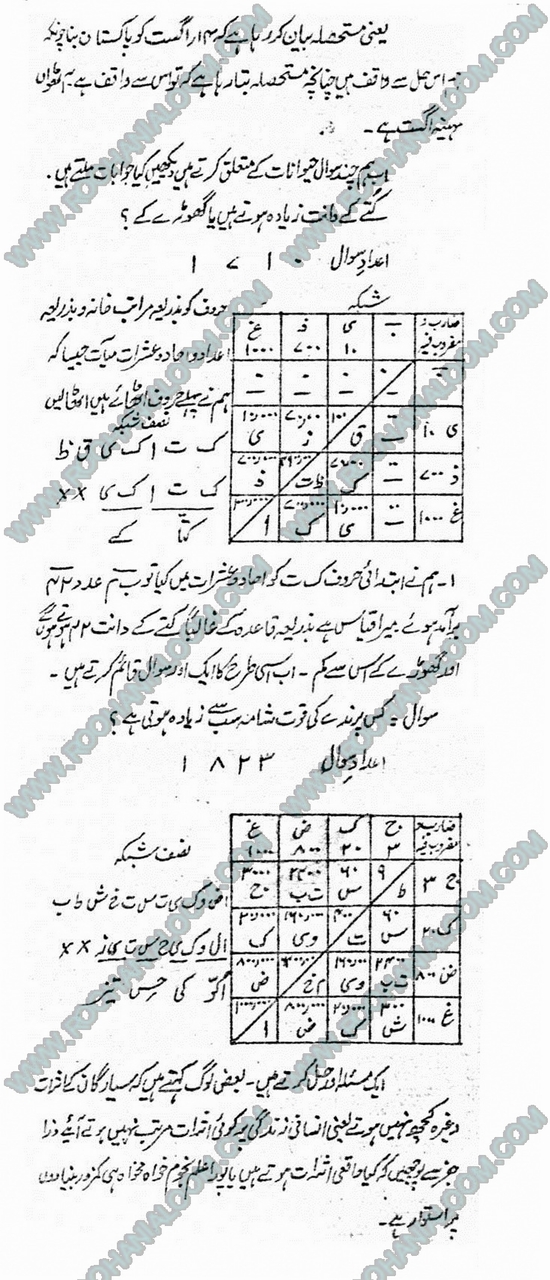 یعنی مستحصلہ بیان کر رہا ہے کہ ۱۴ اگست کو پاکستان بنا چونکہ
ہم اس عمل سے واقف ہیں چنانچہ مستحصلہ بتا رہا ہے کہ تو اس سے واقف ہے یہ آٹھواں
مہینہ اگست ہے۔
اب ہم چند سوال حیوانات کے متعلق کرتے ہیں دیکھیں کیا جوابات ملتے ہیں۔
کتے کے دانت زیادہ ہوتے ہیں یا گھوڑے کے؟
اعداد سوال ۱ ۷ ۱ ۰
شبکہ
حروف کو بذریعہ مراتب خانہ و بذریعہ
اعداد و احاد و عشرات میآت جیسا کہ
ہم نے پہلے حروف اٹھائے ہیں اٹھالیں
نصف شبکہ
ک ت ا ک ی ق ظ
ک ت ا ک ی x x
کتا کے
ضارب و مضروب فیہ
ی ۱۰
ذ ۷۰۰
غ ۱۰۰۰
۱۔ ہم نے ابتدائی حروف ک ت کو احاد و عشرات میں کیا تو ب م عدد ۴۲
برآمد ہوئے۔ میرا قیاس ہے بذریعہ قاعدہ کے غالباً کتے کے دانت ۴۲ ہوتے ہونگے
اور گھوڑے کے اس سے کم۔ اب اسی طرح کا ایک اور سوال قائم کرتے ہیں۔
سوال = کس پرندے کی قوت شامہ سب سے زیادہ ہوتی ہے؟
اعداد سوال ۱ ۸ ۲ ۳
نصف شبکہ
ا ض و ک ی ت س ت خ ش ط ب
ا ل و ک ی ح س ت ی ز x x
اُلّو کی حس تیز
ضارب و مضروب فیہ
ج ۳
ک ۲۰
ض ۸۰۰
غ ۱۰۰۰
ایک مسئلہ اور حل کرتے ہیں۔ بعض لوگ کہتے ہیں کہ سیارگان کے اثرات
وغیرہ کچھ نہیں ہوتے یعنی انسانی زندگی پر کوئی اثرات مرتب نہیں ہوتے آئیے ذرا
جفر سے پوچھیں کہ کیا واقعی اثرات ہوتے ہیں یا پورا علم نجوم خواہ مخواہ ہی کمزور بنیادوں
پر استوار ہے۔
WWW.ROOHANIALOOM.COM